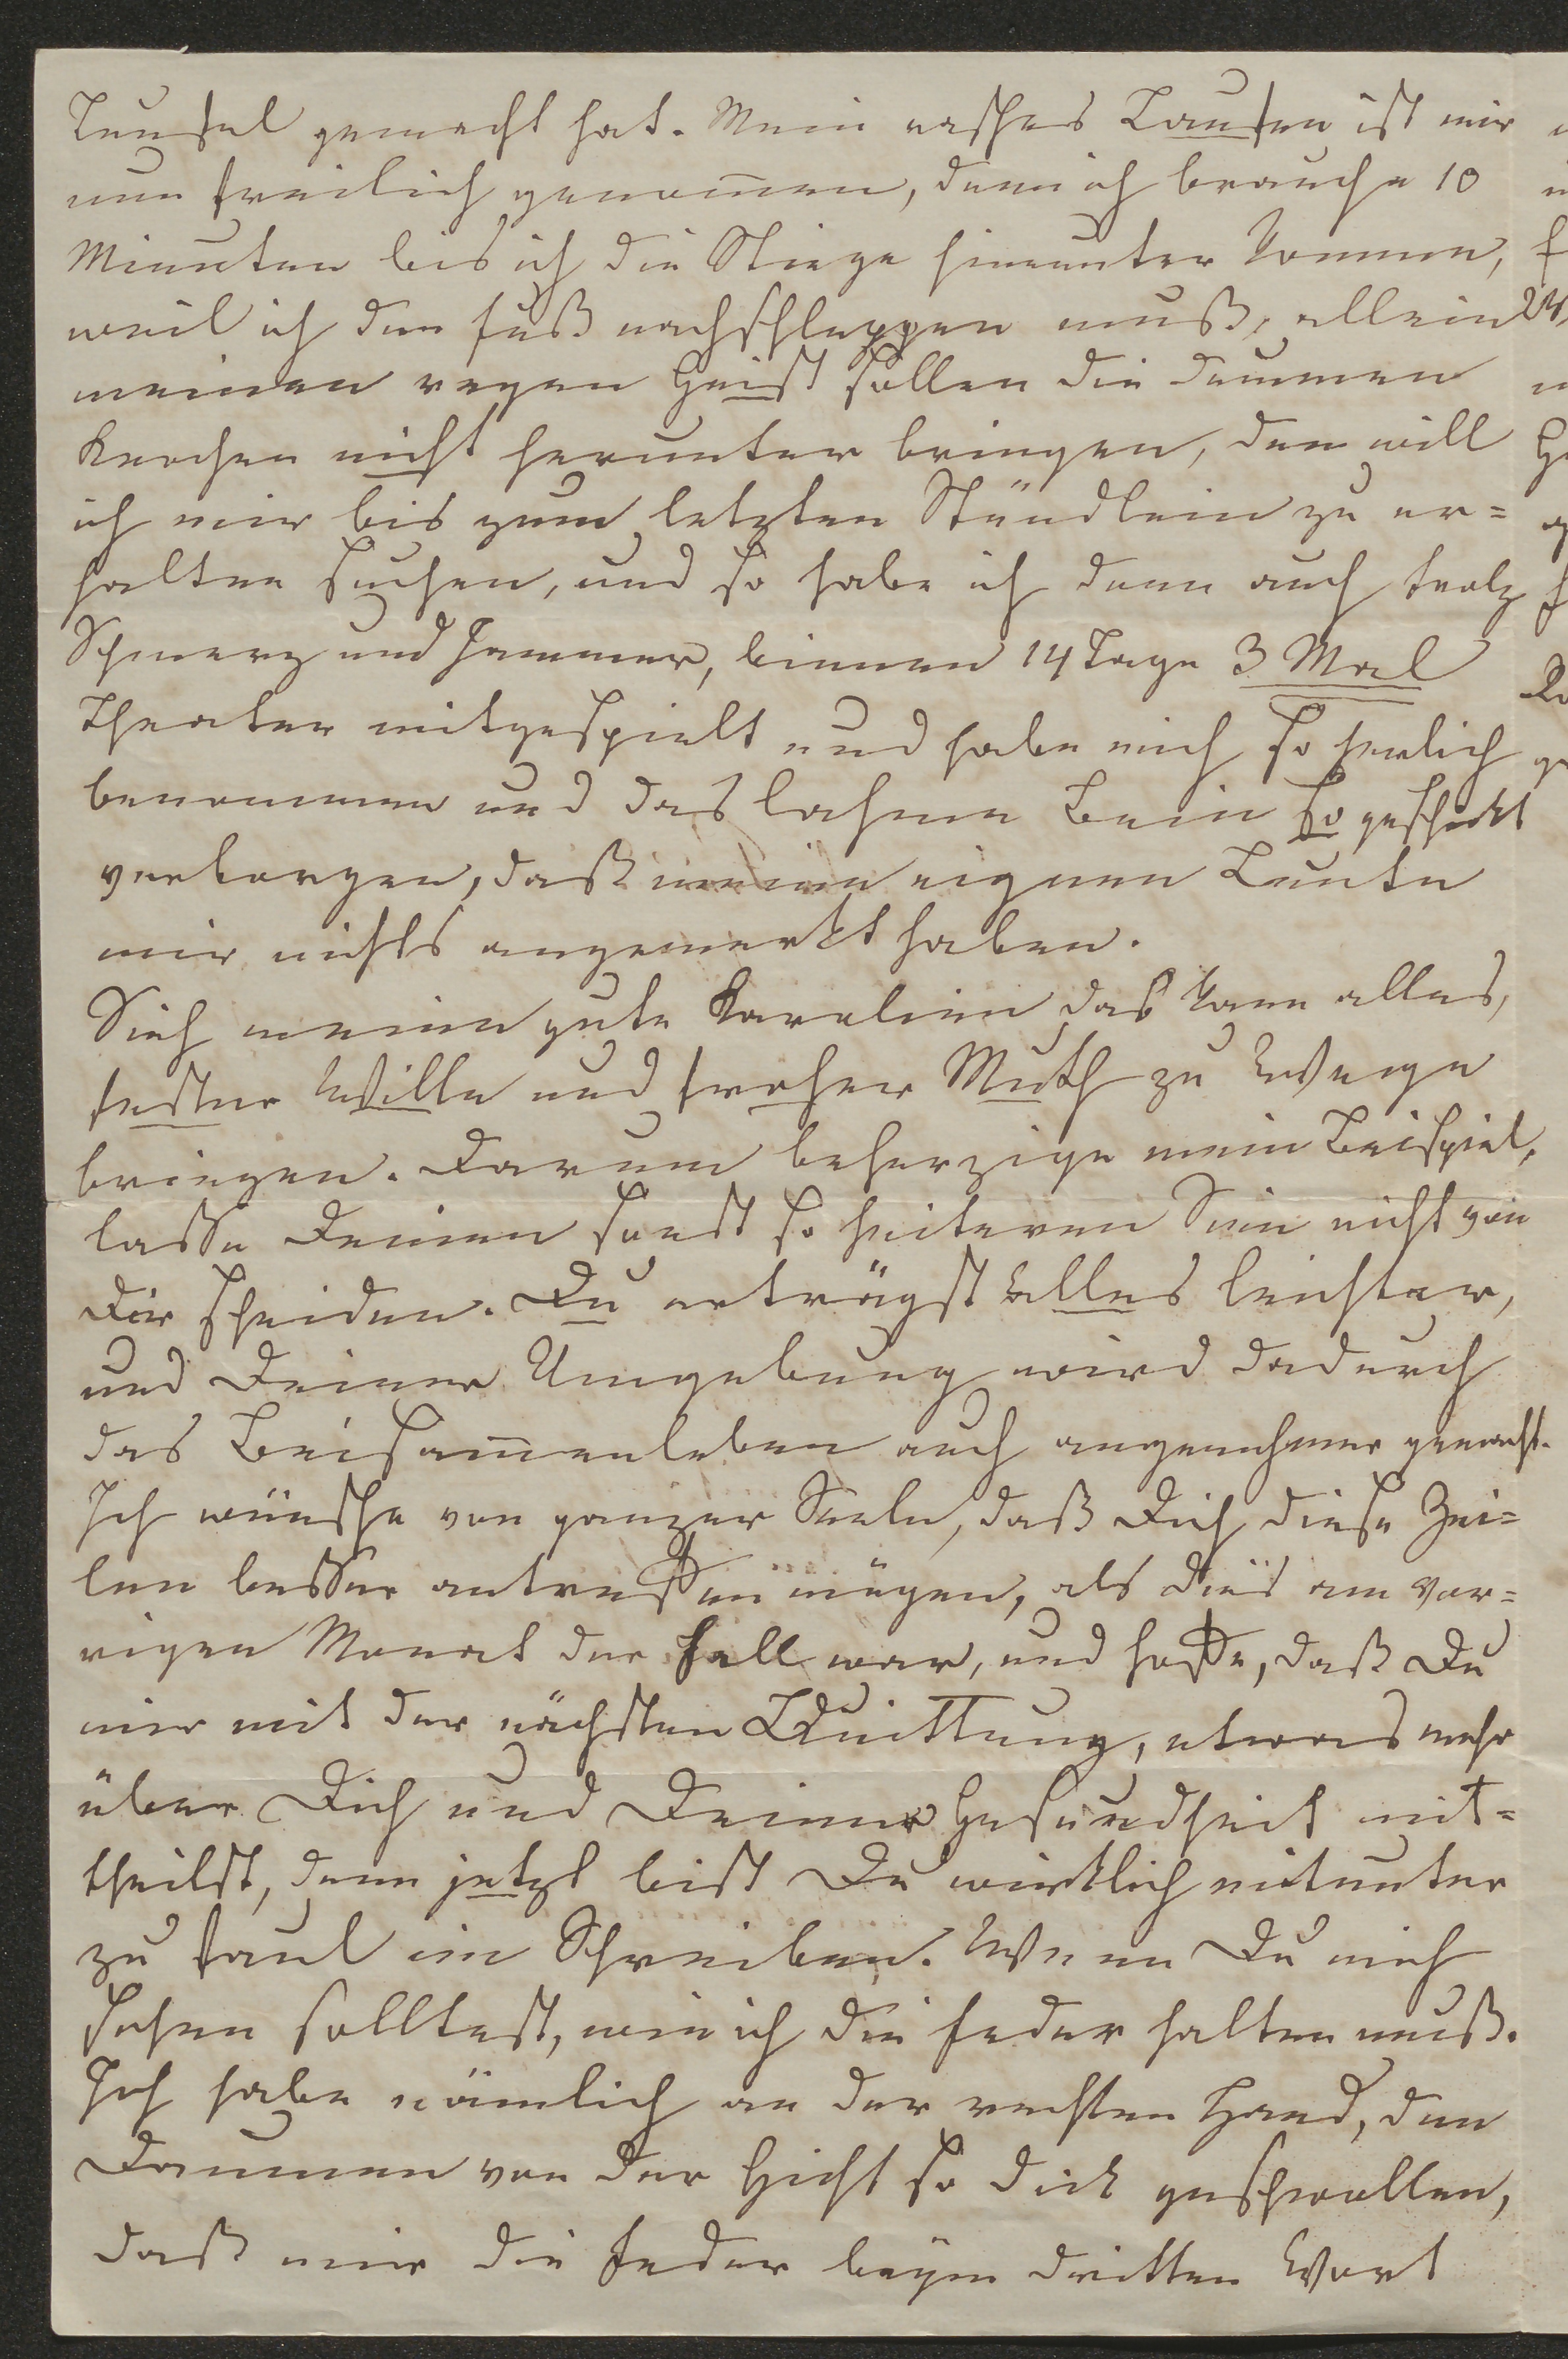 Teufel gemacht hat. Mein rasches Laufen ist mir
nun freilich genom̄en, denn ich brauche 10
Minuten bis ich die Stiege hinunter komme,
weil ich den Fuß nachschleppen muß, allein
meinen regen Geist sollen die dummen
Knochen nicht herunter bringen, den will
ich mir bis zum letzten Stündlein zu er=
halten suchen, und so habe ich denn auch trotz
Schmerz und Jammer, binnen 14 Tage 3 Mal
Theater mitgespielt und habe mich so herlich
benommen und das lahme Bein so geschickt
verborgen, daß meine eignen Leute
mir nichts angemerkt haben.
Sieh meine gute Karoline das kann alles,
fester Wille und froher Muth zu Wege
bringen. Darum beherzige mein Beispiel,
lasse Deinen sonst so heiteren Sinn nicht von
Dir scheiden. Du erträgst alles leichter,
und Deiner Umgebung wird dadurch
das Beisam̄enleben auch angenehmer gemacht.
Ich wünsche von ganzer Seele, daß Dich diese Zei=
len besser antreffen mögen, als dies am vor=
rigen Monat der Fall war, und hoffe, daß Du
mir mit der nächsten Quittung, etwas mehr
über Dich und Deine Gesundheit mit=
theilst, denn jetzt bist Du wirklich mitunter
zu faul im Schreiben. Wenn Du mich
sehen solltest, wie ich die Feder halten muß.
Ich habe nämlich an der rechten Hand, den
Daumen von der Gicht so dick geschwollen,
daß mir die Feder beym dritten Wort